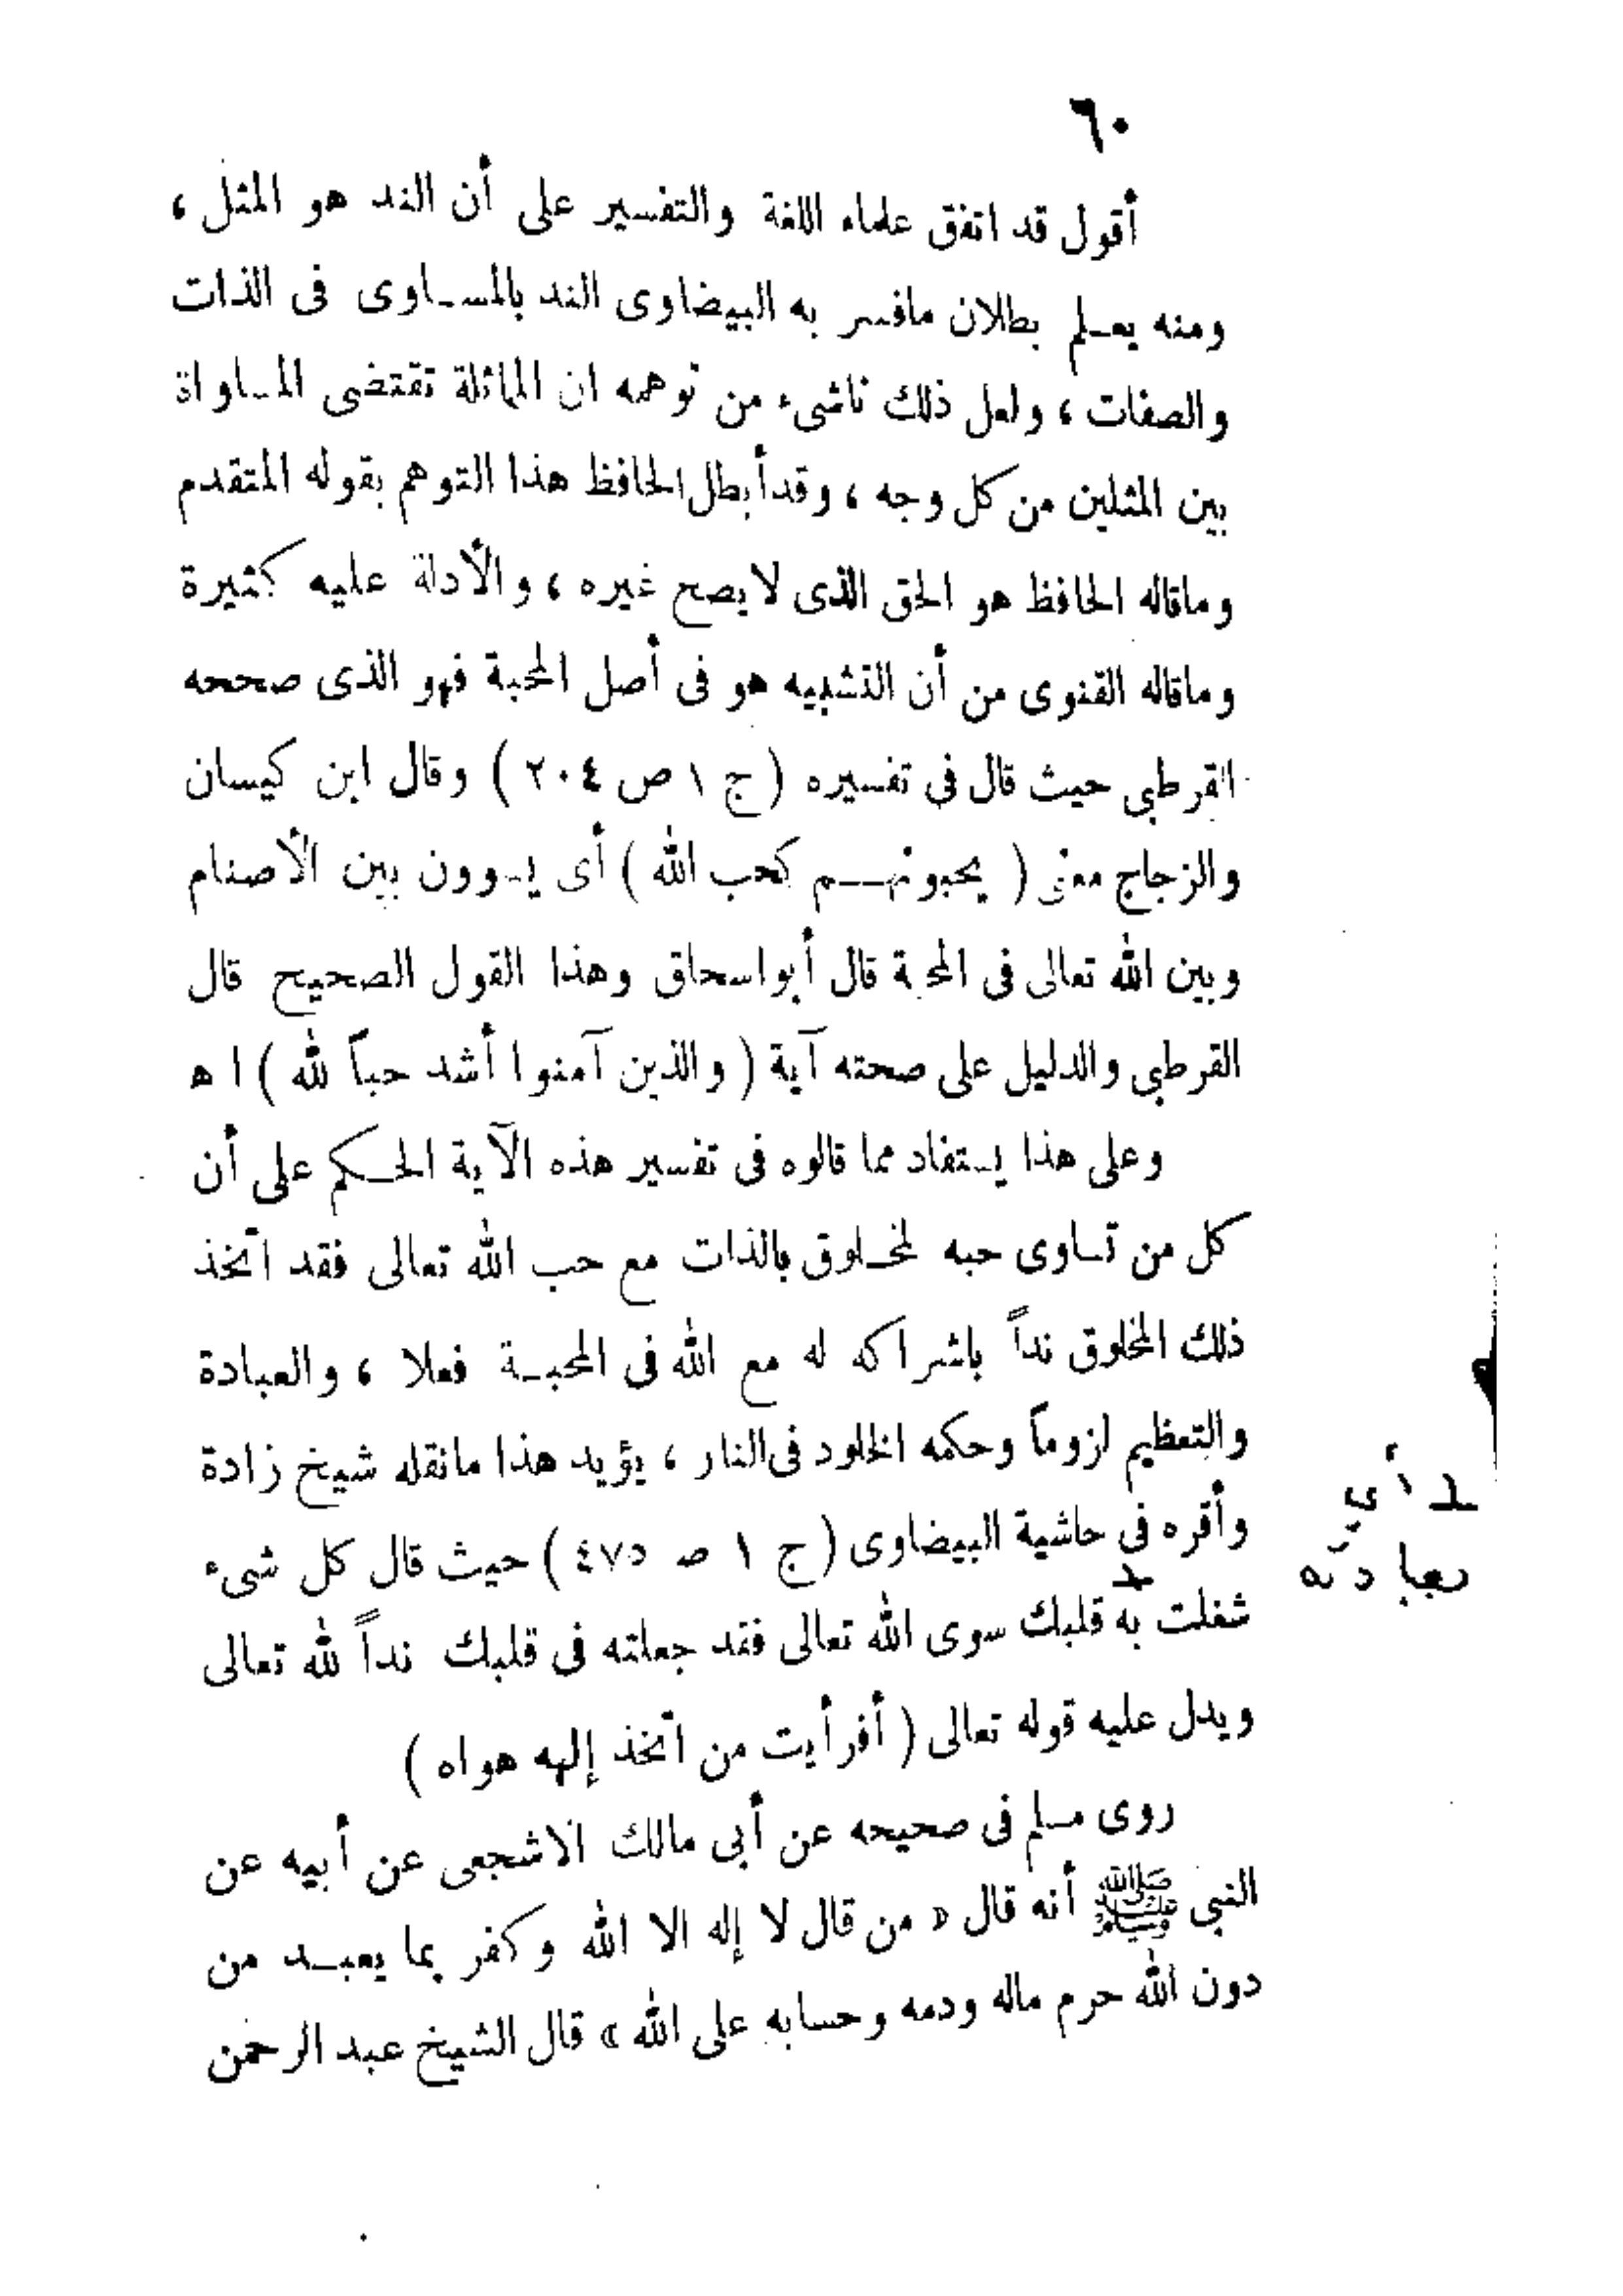 ٦٠
أقول قد اتفق علماء اللغة والتفسير على أن الند هو المثل ،
ومنه يعلم بطلان مافسر به البيضاوى الند بالمساوى فى الذات
والصفات ، ولعل ذلك ناشىء من توهمه ان المماثلة تقتضى المساواة
بين المثلين من كل وجه ، وقد أبطل الحافظ هذا التوهم بقوله المتقدم
وماقاله الحافظ هو الحق الذى لايصح غيره ، والأدلة عليه كثيرة
وماقاله القنوى من أن التشبيه هو فى أصل المحبة فهو الذى صححه
القرطبى حيث قال فى تفسيره ( ج ١ ص ٢٠٤ ) وقال ابن كيسان
والزجاج معنى ( يحبونهم كحب الله ) أى يسوون بين الأصنام
وبين الله تعالى فى المحبة قال أبواسحاق وهذا القول الصحيح قال
القرطبى والدليل على صحته آية ( والذين آمنوا أشد حباً لله ) ا ه
وعلى هذا يستفاد مما قالوه فى تفسير هذه الآية الحكم على أن
كل من تساوى حبه لمخلوق بالذات مع حب الله تعالى فقد اتخذ
ذلك المخلوق نداً باشراكه له مع الله فى المحبة فعلا ، والعبادة
والتعظيم لزوماً وحكمه الخلود فى النار ، يؤيد هذا مانقله شيخ زادة
وأقره فى حاشية البيضاوى ( ج ١ ص ٤٧٥ ) حيث قال كل شىء
شغلت به قلبك سوى الله تعالى فقد جعلته فى قلبك نداً لله تعالى
ويدل عليه قوله تعالى ( أفرأيت من اتخذ إلهه هواه )
روى مسلم فى صحيحه عن أبى مالك الاشجعى عن أبيه عن
النبى ﷺ أنه قال « من قال لا إله الا الله وكفر بما يعبد من
دون الله حرم ماله ودمه وحسابه على الله » قال الشيخ عبد الرحمن
أي
بعبادته